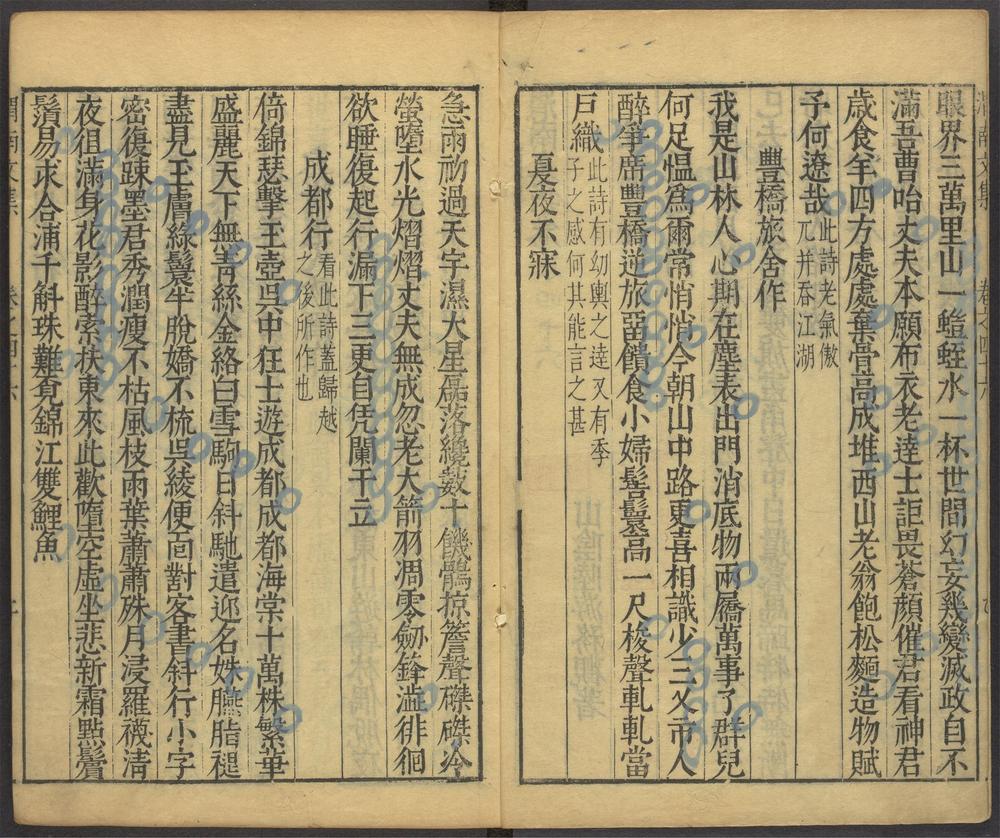 眼界三萬里山一螘蛭水一杯世間幻妄幾變滅政自不
滿吾曹咍丈夫本願布衣老達士詎畏蒼顏催君看神君
歲食羊四方處處棄骨高成堆西山老翁飽松麵造物賦
予何遼哉此詩老氣傲
兀并吞江湖
豐橋旅舍作
我是山林人心期在塵表出門消底物兩屩萬事了羣兒
何足慍爲爾常悄悄今朝山中路更喜相識少三乂市人
醉爭席豐橋逆旅罾饋食小婦髻鬟高一尺梭聲軋軋當
戶織此詩有幼輿之達又有季
子之感何其能言之甚
夏夜不寐
急雨初過天宇濕大星磊落纔數十饑鶻掠簷聲磔磔冷
螢墮水光熠熠丈夫無成忽老大箭羽凋零劒鋒澁徘徊
欲睡復起行漏下三更自凭闌干立
成都行看此詩蓋歸越
之後所作也
倚錦瑟擊玉壺吳中狂士遊成都成都海棠十萬株繁華
盛麗天下無青絲金絡白雪駒日斜馳遣迎名姝臙脂褪
盡見玉膚綠鬟半脫嬌不梳吳綾便靣對客書斜行小字
密復踈墨君秀潤瘦不枯風枝雨葉蕭蕭殊月浸羅襪清
夜徂滿身花影醉索扶東來此歡墮空虛坐悲新霜點鬢
鬚易求合浦千斛珠難覓錦江雙鯉魚